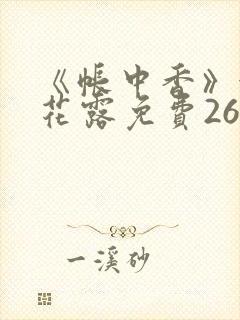 《帐中香》
花露免費26
一溪砂